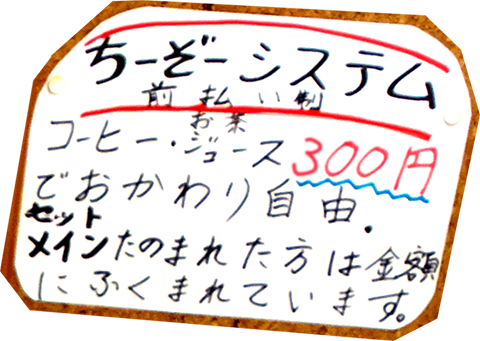 ちーぞーシステム
前払い制
お茶
コーヒー・ジュース300円
でおかわり自由.
セット
メインたのまれた方は金額
にふくまれています。